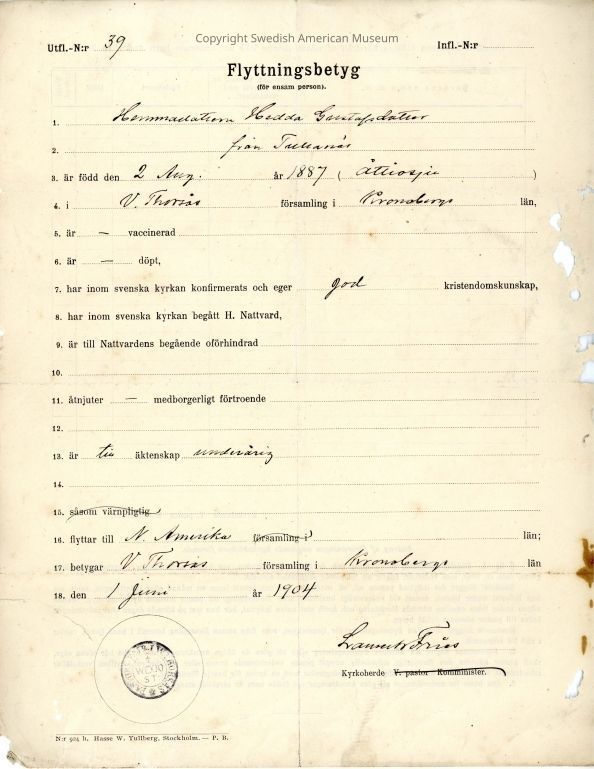 Copyright Swedish American Museum
Utfl.-N:r 39 Infl.-N:r
Flyttningsbetyg
(för ensam person).
1. Hemmadottern Hedda Gustafsdotter
2. från
3. är född den 2 Aug. år 1887 ( )
4. i V. Thorsås församling i Kronobergs län,
5. är — vaccinerad
6. är — döpt,
7. har inom svenska kyrkan konfirmerats och eger god kristendomskunskap,
8. har inom svenska kyrkan begått H. Nattvard,
9. är till Nattvardens begående oförhindrad
10.
11. åtnjuter — medborgerligt förtroende
12.
13. är till äktenskap underårig
14.
15. såsom värnpligtig
16. flyttar till N. Amerika församling i län;
17. betygar V. Thorsås församling i Kronobergs län
18. den 1 Juni år 1904
Fries
Kyrkoherde V. pastor Komminister.
N:r 924 lt. Hasse W. Tullberg, Stockholm. — P. B.